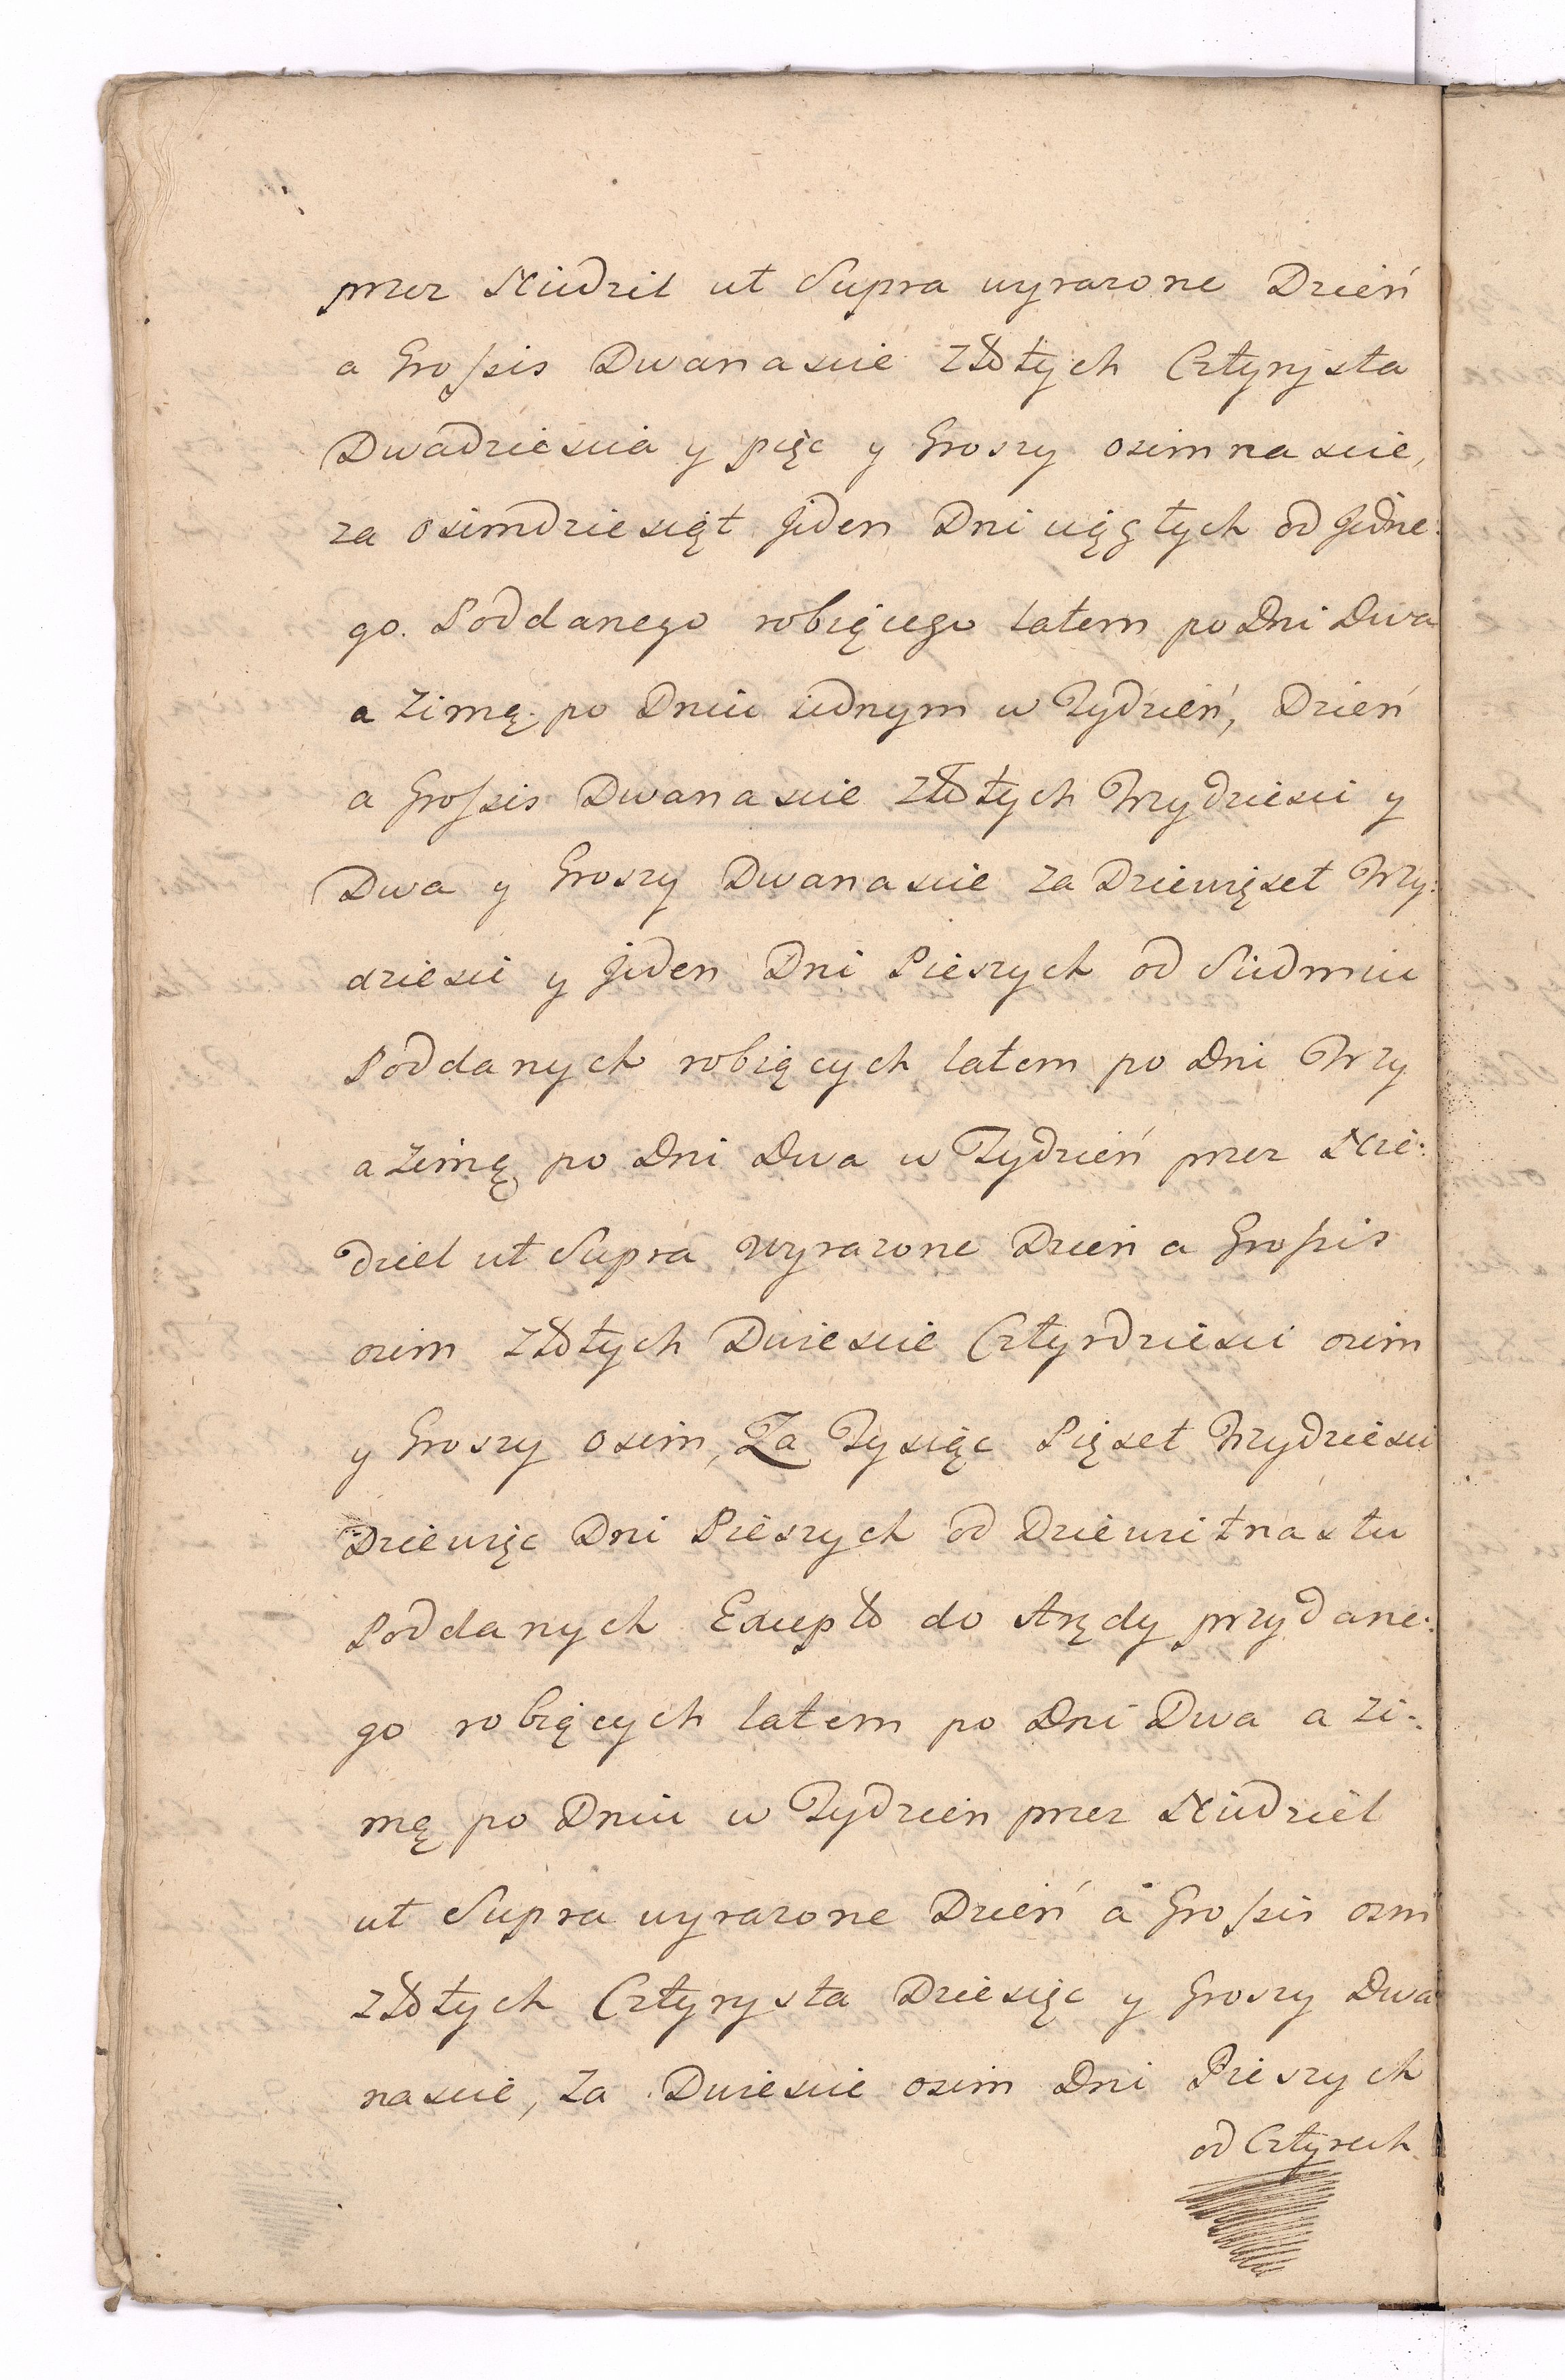 przez Niedziel ut Supra wyrazone Dzień
a Grossis Dwanascie Złotych Cztyrysta
Dwadziescia y pięc y Groszy osimnascie,
za osimdziesiąt Jeden Dni ciągłych od Jedne:
go. Poddanego robiącego latem po Dni Dwa
a Zimą po Dniu iednym w Tydzień, Dzień
a Grossis Dwanascie Złotych Trzydziesci y
Dwa y Groszy Dwanascie za Dziewięset Trzy:
dziesci y Jeden Dni Pieszych od Siedmiu
Poddanych robiących latem po Dni Trzy
a Zimą po Dni Dwa w Tydzień przez Nie:
dziel ut Supra wyrazone Dzień a Grossis
osim Złotych Dwiescie Cztyrdziesci osim
y Groszy osim, Za Tysiąc Pięset Trzydziesci
Dziewięc Dni Pieszych od Dziewitnastu
Poddanych Excepto do Arędy przydane:
go robiących latem po Dni Dwa a Zi:
mą po Dniu w Tydzien przez Niedziel
ut Supra wyrazone Dzień a Grossis osm
Złotych Cztyrysta Dziesięc y Groszy Dwa
nascie, za Dwiescie osim Dni Pieszych
od Cztyrech